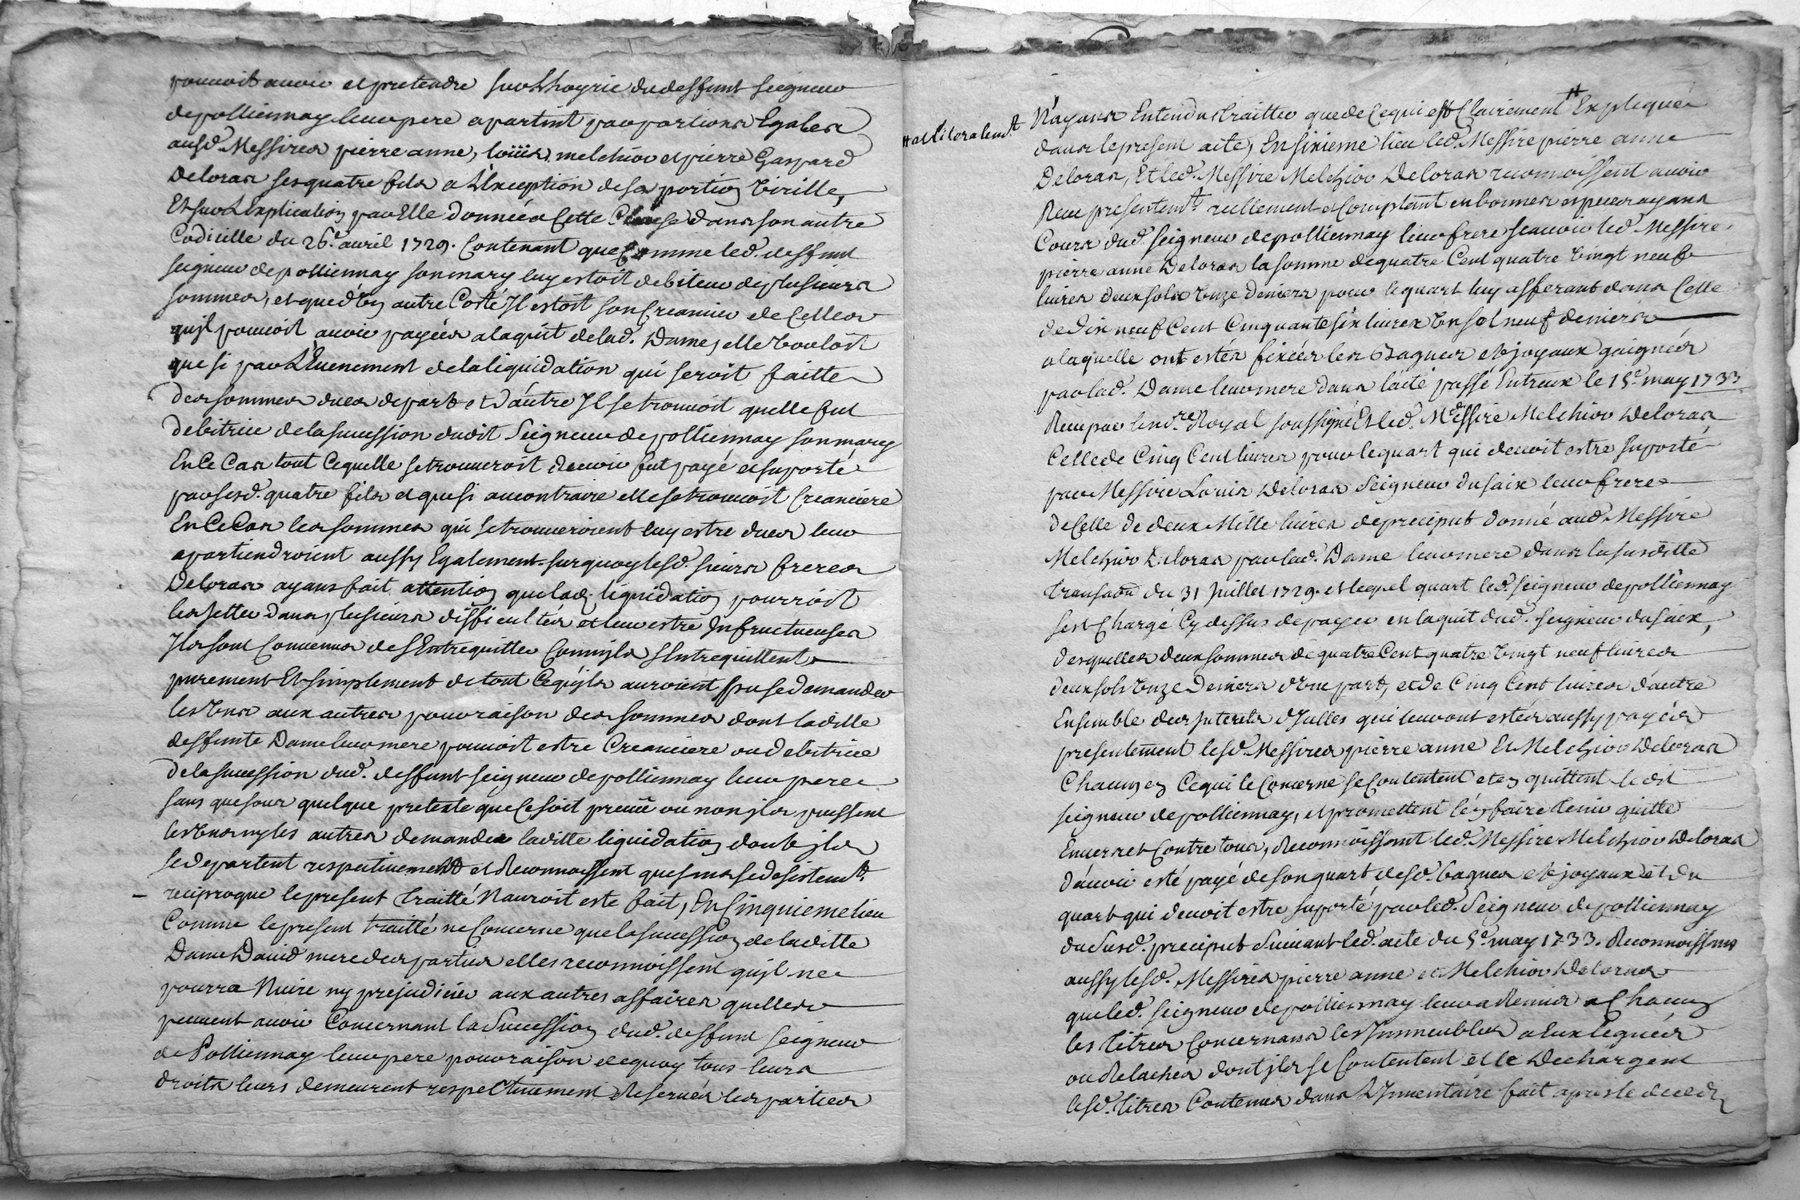 pouvoit avoir et pretendre sur L'hoyrie du deffunt seigneur
de polliennay leur pere apartint par portions Egales
ausd. Messires pierre anne, loüis, melchior et pierre Gaspard
Deloras ses quatre fils a L'Exception de sa portion virille,
Et sur L'Explication par Elle donnée a Cette Clause dans son autre
Codicille du 26e. avril 1729. Contenant que Comme led. deffunt
seigneur de polliennay son mary luy estoit debiteur de plusieurs
sommes, et que d'un autre Costé Il estoit son Creancier de Celles
qu'jl pouvoit avoir payées a laquit de lad. Dame, elle vouloit
que si par L'Evenement de la liquidation qui seroit faitte
des sommes dues de part et d'autre Il se trouvoit quelle fut
debitrice de la sucession dudit Seigneur de polliennay son mary
En Ce Cas tout Cequelle se trouveroit devoir fut payé et suporté
par sesd. quatre fils et que si au contraire elle se trouvoit Creanciere
En Ce Cas les sommes qui se trouveroient luy estre dues leur
apartiendroient aussy Egalement. sur quoy lesd. sieurs freres
Deloras ayans fait attention que lad. liquidation pourroit
les Jetter dans plusieurs difficultés et leur estre Infructueuses
Ils sont Convenus de s'Entrequitter Comm'jls s'Entrequittent
purement Et simplement de tout Cequ'jls auroient pu se demander
les Uns aux autres pour raison des sommes dont laditte
deffunte Dame leur mere pouvoit estre Creanciere ou debitrice
de la sucession dud. deffunt seigneur de polliennay leur pere
sans que sous quelque pretexte que Ce soit preuû ou non jls puissent
les Uns ny les autres demander laditte liquidation dont jls
se departent respectivement et Reconnoissent que sans se desistemt.
reciproque le present Traitté N'auroit esté fait, En Cinquieme lieu
Comme le present traitté ne Concerne que la sucession de laditte
Dame David mere des parties elles reconnoissent qu'jl ne
pourra Nuire ny prejudicier aux autres affaires quelles
peuvent avoir Concernant la Sucession dud. deffunt seigneur
de Polliennay leur pere pour raison de quoy tous leurs
droits leurs demeurent respectivement Reservés les parties
# et Literalemt.
N'ayans Entendu traitter que de Cequi est Clairement # Expliqué
dans le present acte, En sixieme lieu led. Messire pierre anne
Deloras, Et led. Messire Melchior Deloras reconnoissent avoir
Reçu presentemt. reellement et Comptant en bonnes especes ayans
Cours dud. seigneur de polliennay leur frere scavoir led. Messire
pierre anne Deloras la somme de quatre Cent quatre vingt neuf
livres deux sols onze deniers pour le quart luy afferant dans Celle
de dix neuf Cent Cinquante six livres Un sol neuf deniers
a laquelle ont estés fixées les Bagues et joyaux gaignés
par lad. Dame leur mere dans l'acte passé Entreux le 15e. may 1733
Reçu par le nre. Royal soussigné Et led. Messire Melchior Deloras
Celle de Cinq Cent livres pour le quart qui devoit estre suporté
par Messire Louis Deloras Seigneur du saix leur frere
de Celle de deux Mille livres de preciput donné aud. Messire
Melchior Deloras par lad. Dame leur mere dans la susditte
Transaôn du 31 Juillet 1729. et lequel quart led. seigneur de polliennay
s'est Chargé Cy dessus de payer en laquit dud. seigneur du saix,
desquelles deux sommes de quatre Cent quatre vingt neuf livres
deux sols onze Deniers d'Une part, et de Cinq Cent livres d'autre
Ensemble des Interets d'Icelles qui leur ont estés aussy payés
presentement lesd. Messires pierre anne Et Melchior Deloras
Chacun en Cequi le Concerne se Contentent et en quittent ledit
seigneur de polliennay, et promettent l'en faire tenir quitte
Envers et Contre tous, Reconnoissant led. Messire Melchior Deloras
d'avoir esté payé de son quart desd. bagues et joyaux et du
quart qui devoit estre suporté par led. Seigneur de polliennay
du Susd. preciput Suivant led. acte du 5e. may 1733. Reconnoissans
aussy lesd. Messires pierre anne et Melchior Deloras
que led. seigneur de polliennay leur a Remis a Chacun
les titres Concernans les Immeubles a Eux legués
ou Relachés dont jls se Contentent et le Dechargent
lesd. titres Contenus dans L'Inventaire fait apres le deced